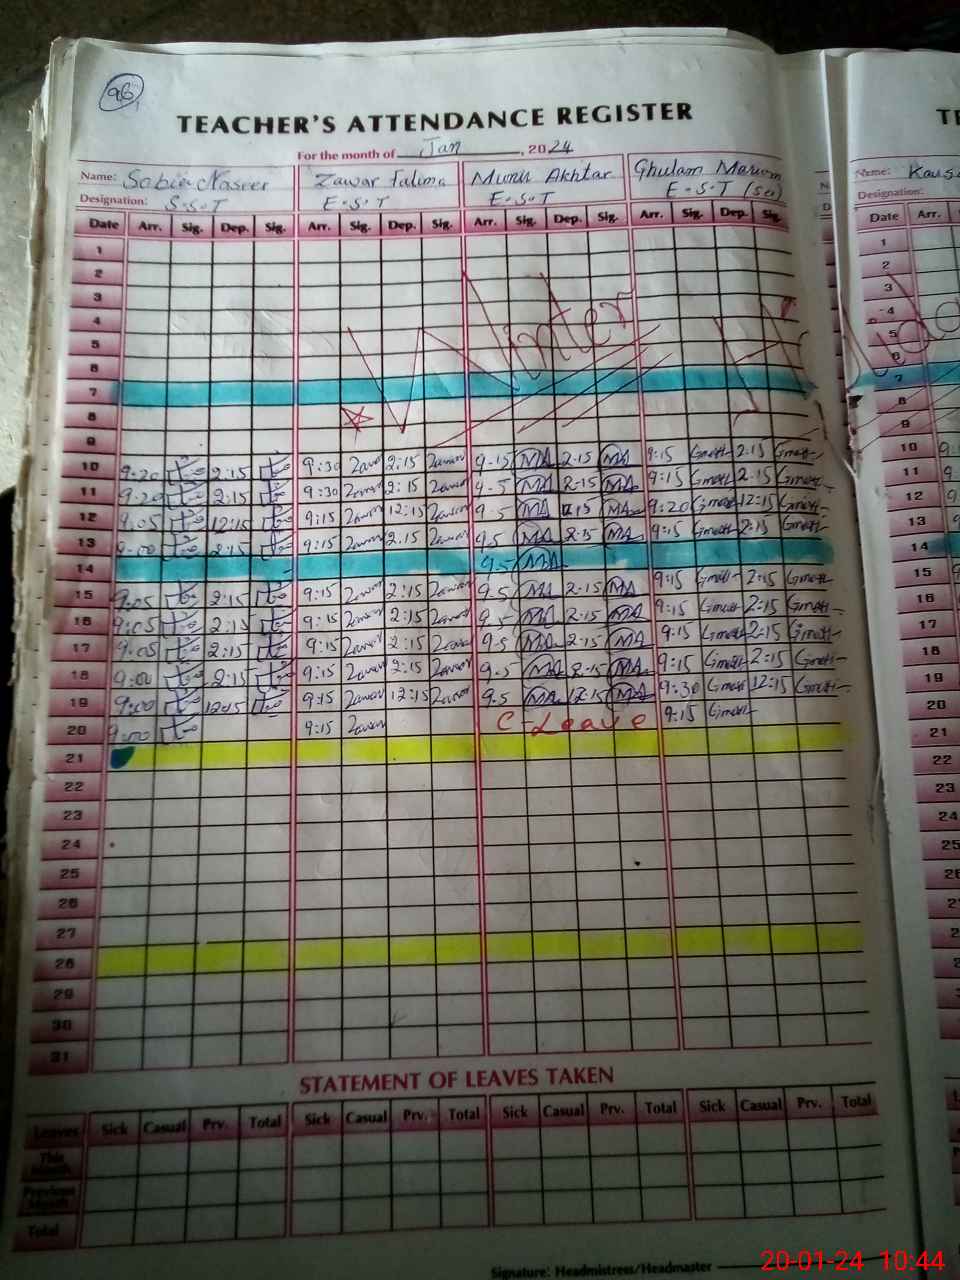 96
TEACHER'S ATTENDANCE REGISTER
For the month of Jan, 2024
Name: Sobia Naseer Zawar Fatima Munir Akhtar Ghulam Marium
Designation: S.S.T E.S.T E.S.T E.S.T (Sci)
Date Arr. Sig. Dep. Sig. Arr. Sig. Dep. Sig. Arr. Sig. Dep. Sig. Arr. Sig. Dep. Sig.
1
2
3
4
5
6
7
8
9
Winter
10 9:20 2:15 9:30 Zawar 2:15 Zawar 9-15 MA 2-15 MA 9:15 2:15
11 9:20 2:15 9:30 Zawar 2:15 Zawar 9-5 MA 2-15 MA 9:15 2:15
12 9:05 12:15 9:15 Zawar 12:15 Zawar 9-5 MA 12-15 MA 9:20 12:15
13 9:00 2:15 9:15 Zawar 2:15 Zawar 9-5 MA 2-15 MA 9:15 2:15
14 9-5 MA
15 9:05 2:15 9:15 Zawar 2:15 Zawar 9-5 MA 2-15 MA 9:15 2:15
16 9:05 2:15 9:15 Zawar 2:15 Zawar 9-5 MA 2-15 MA 9:15 2:15
17 9:05 2:15 9:15 Zawar 2:15 Zawar 9-5 MA 2-15 MA 9:15 2:15
18 9:00 2:15 9:15 Zawar 2:15 Zawar 9-5 MA 2-15 MA 9:15 2:15
19 9:00 12:15 9:15 Zawar 12:15 Zawar 9-5 MA 12-15 MA 9:30 12:15
20 9:00 9:15 Zawar C-Leave 9:15
21
22
23
24
25
26
27
28
29
30
31
STATEMENT OF LEAVES TAKEN
Leaves Sick Casual Prv. Total Sick Casual Prv. Total Sick Casual Prv. Total Sick Casual Prv. Total
This Month
Previous Month
Total
Signature: Headmistress/Headmaster
Name:
Designation:
Date Arr.
1
2
3
4
5
6
7
8
9
10
11
12
13
14
15
16
17
18
19
20
21
22
23
24
20-01-24 10:44